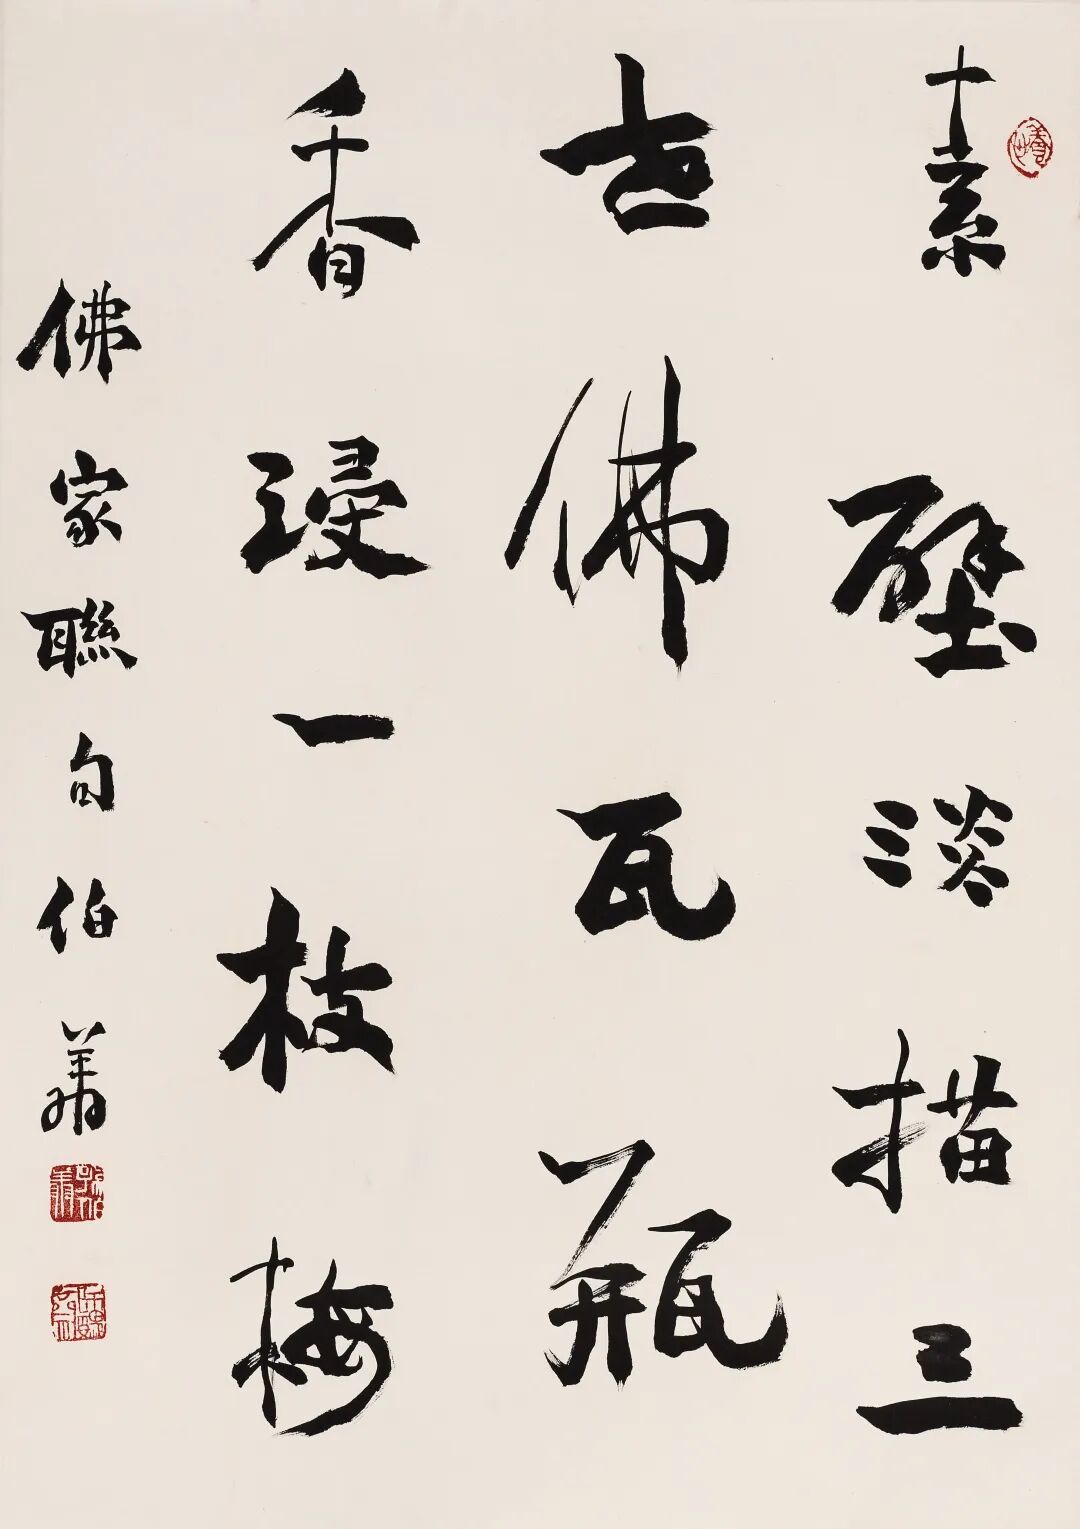 素壁淡描三
世佛瓦瓶
香浸一枝梅
佛家聯句伯翔